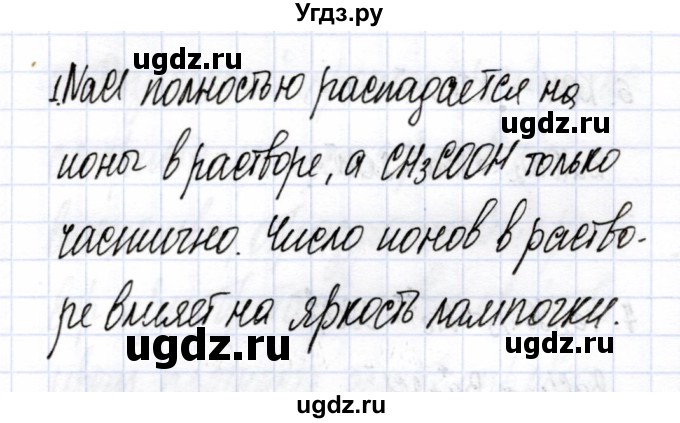 Угдз.ру
ugdz.ru
1. NaCl полностью распадается на
ugdz.ru
ионы в растворе, а CH3COOH только
ugdz.ru
частично. Число ионов в раство-
ре влияет на яркость лампочки.
ugdz.ru ugdz.ru
ugdz.ru